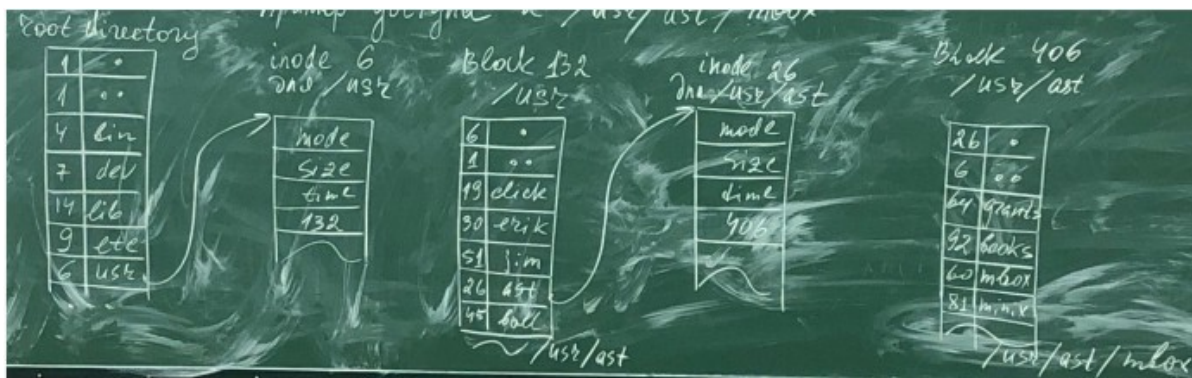 Пример доступа к /usr/ast/mbox
root directory
1 .
1 ..
4 bin
7 dev
14 lib
9 etc
6 usr
inode 6
для /usr
mode
size
time
132
Block 132
/usr
6 .
1 ..
19 click
30 erik
51 jim
26 ast
45 ball
/usr/ast
inode 26
для /usr/ast
mode
size
time
406
Block 406
/usr/ast
26 .
6 ..
64 grants
92 books
60 mbox
81 minix
/usr/ast/mbox